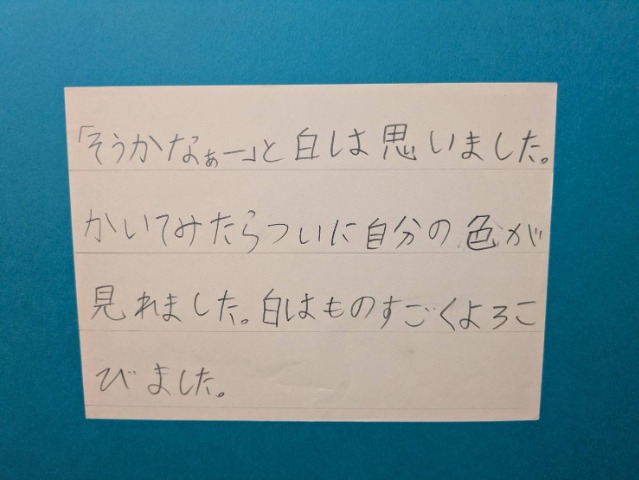 「そうかなぁー」と白は思いました。
かいてみたらついに自分の色が
見れました。白はものすごくよろこ
びました。